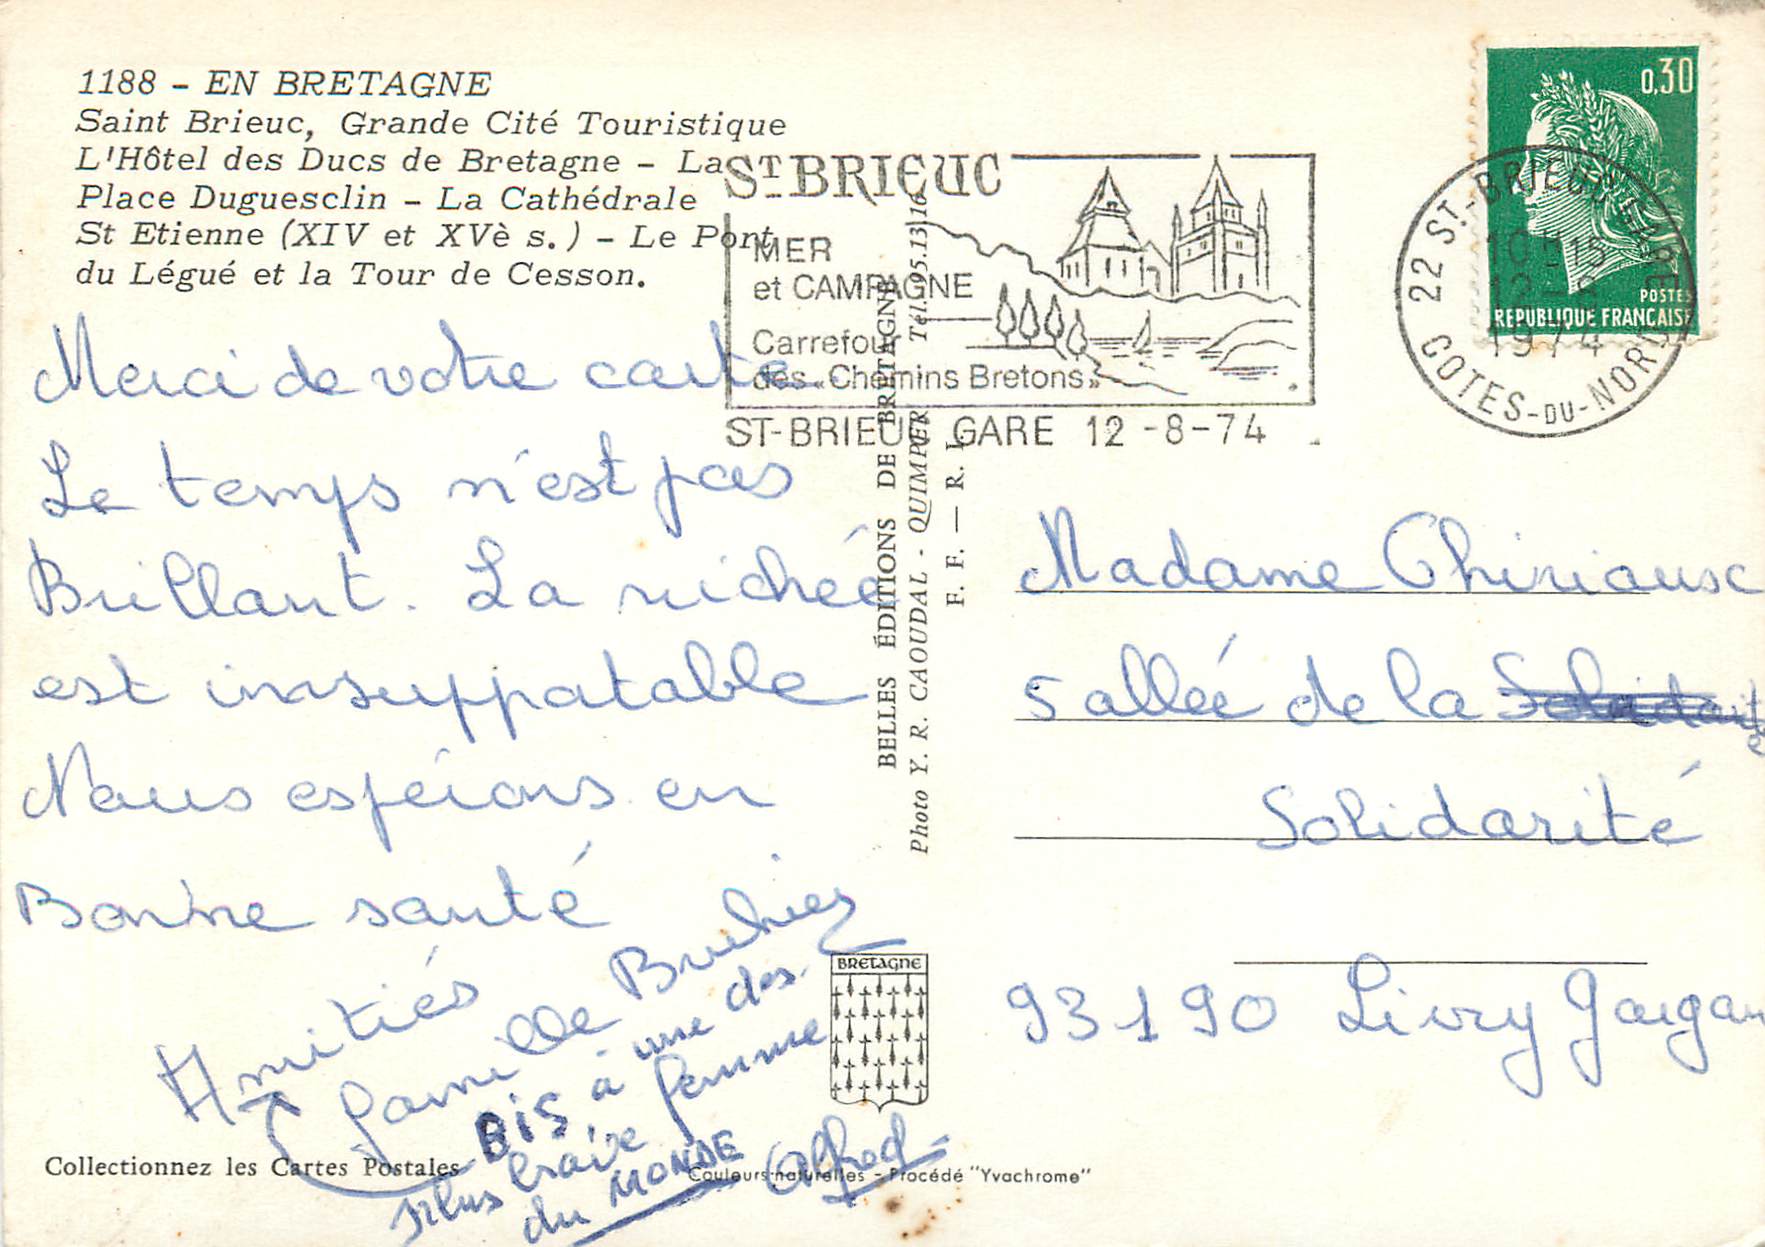 1188 - EN BRETAGNE
Saint Brieuc, Grande Cité Touristique
L'Hôtel des Ducs de Bretagne - La
Place Duguesclin - La Cathédrale
St Etienne (XIV et XVè s.) - Le Pont
du Légué et la Tour de Cesson.
ST BRIEUC
MER
et CAMPAGNE
Carrefour
des "Chemins Bretons"
ST-BRIEUC GARE 12-8-74
22 ST-BRIEUC GARE
12-8
1974
COTES-DU-NORD
0,30
POSTES
REPUBLIQUE FRANCAISE
Merci de votre carte.
Le temps n'est pas
Brillant. La nichée
est insuppatable
Nous espérons en
Bonne santé
Amitiés
famille Bruhiez
BIS à une des
plus braive femme
du MONDE Alfred
BELLES ÉDITIONS DE BRETAGNE
Photo Y. R. CAOUDAL - QUIMPER Tél. 95.13.16
F. F. — R. L.
Madame Thiriausc
5 allée de la
Solidarité
93190 Livry Gargan
BRETAGNE
Collectionnez les Cartes Postales
Couleurs naturelles - Procédé "Yvachrome"